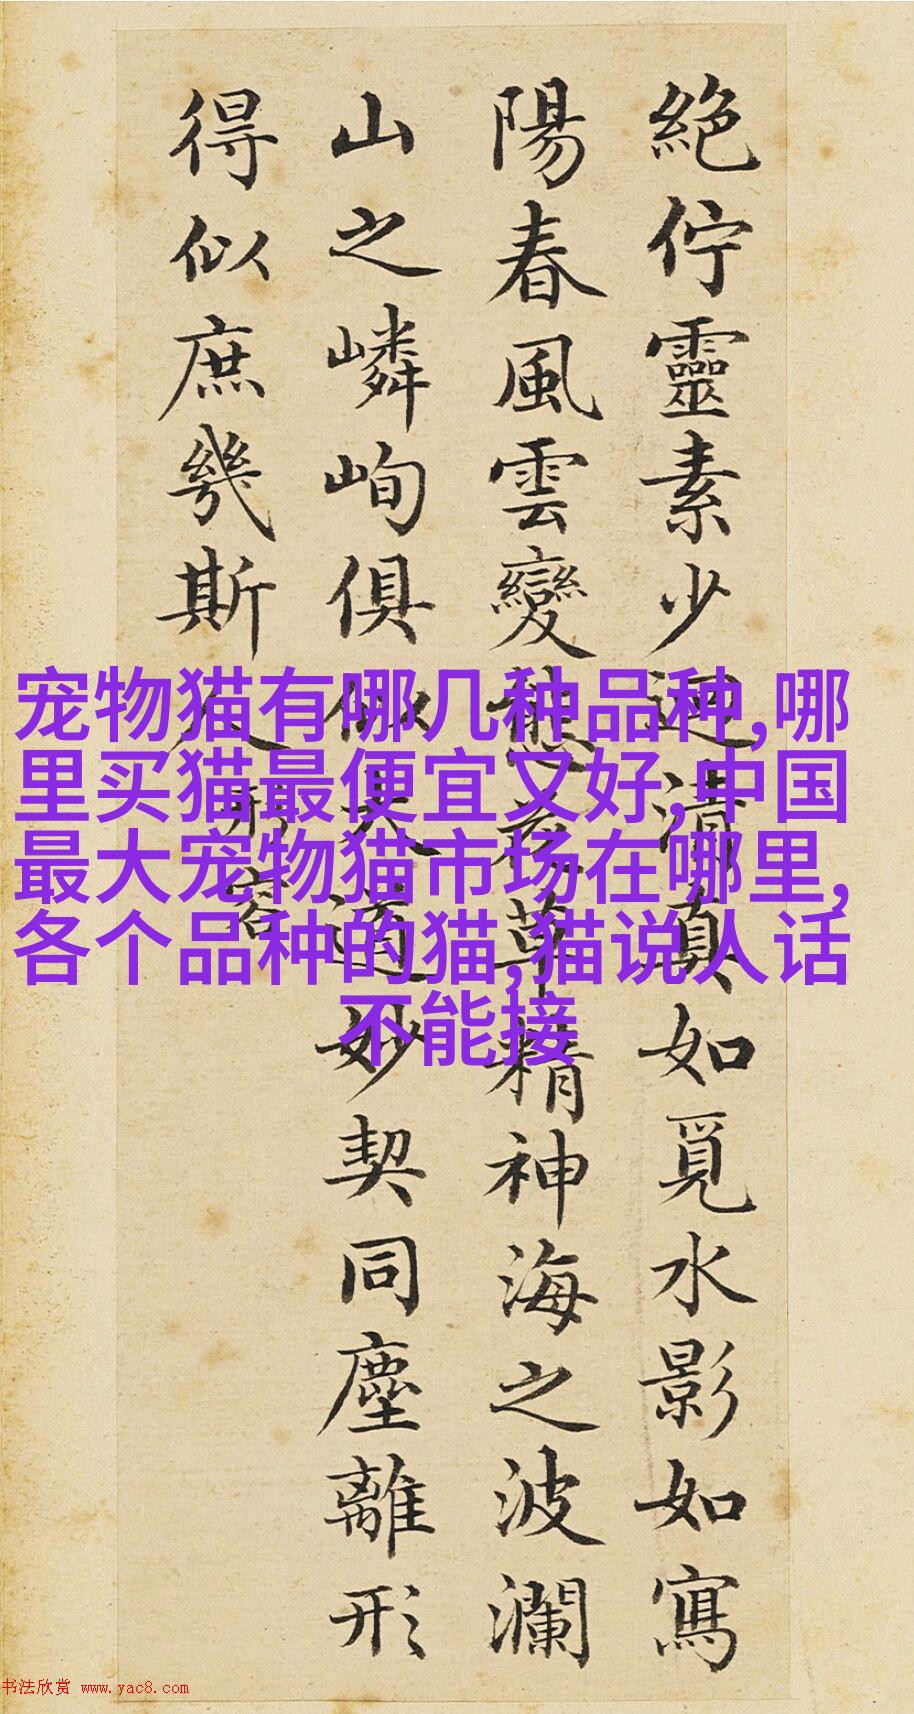 絶佇靈素少迴清真如覓水影如寫
陽春風雲變態花草精神海之波瀾
山之嶙峋俱似大道妙契同塵離形
得似庶幾斯人形容
宠物猫有哪几种品种,哪
里买猫最便宜又好,中国
最大宠物猫市场在哪里,
各个品种的猫,猫说人话
不能接
书法欣赏 www.yac8.com